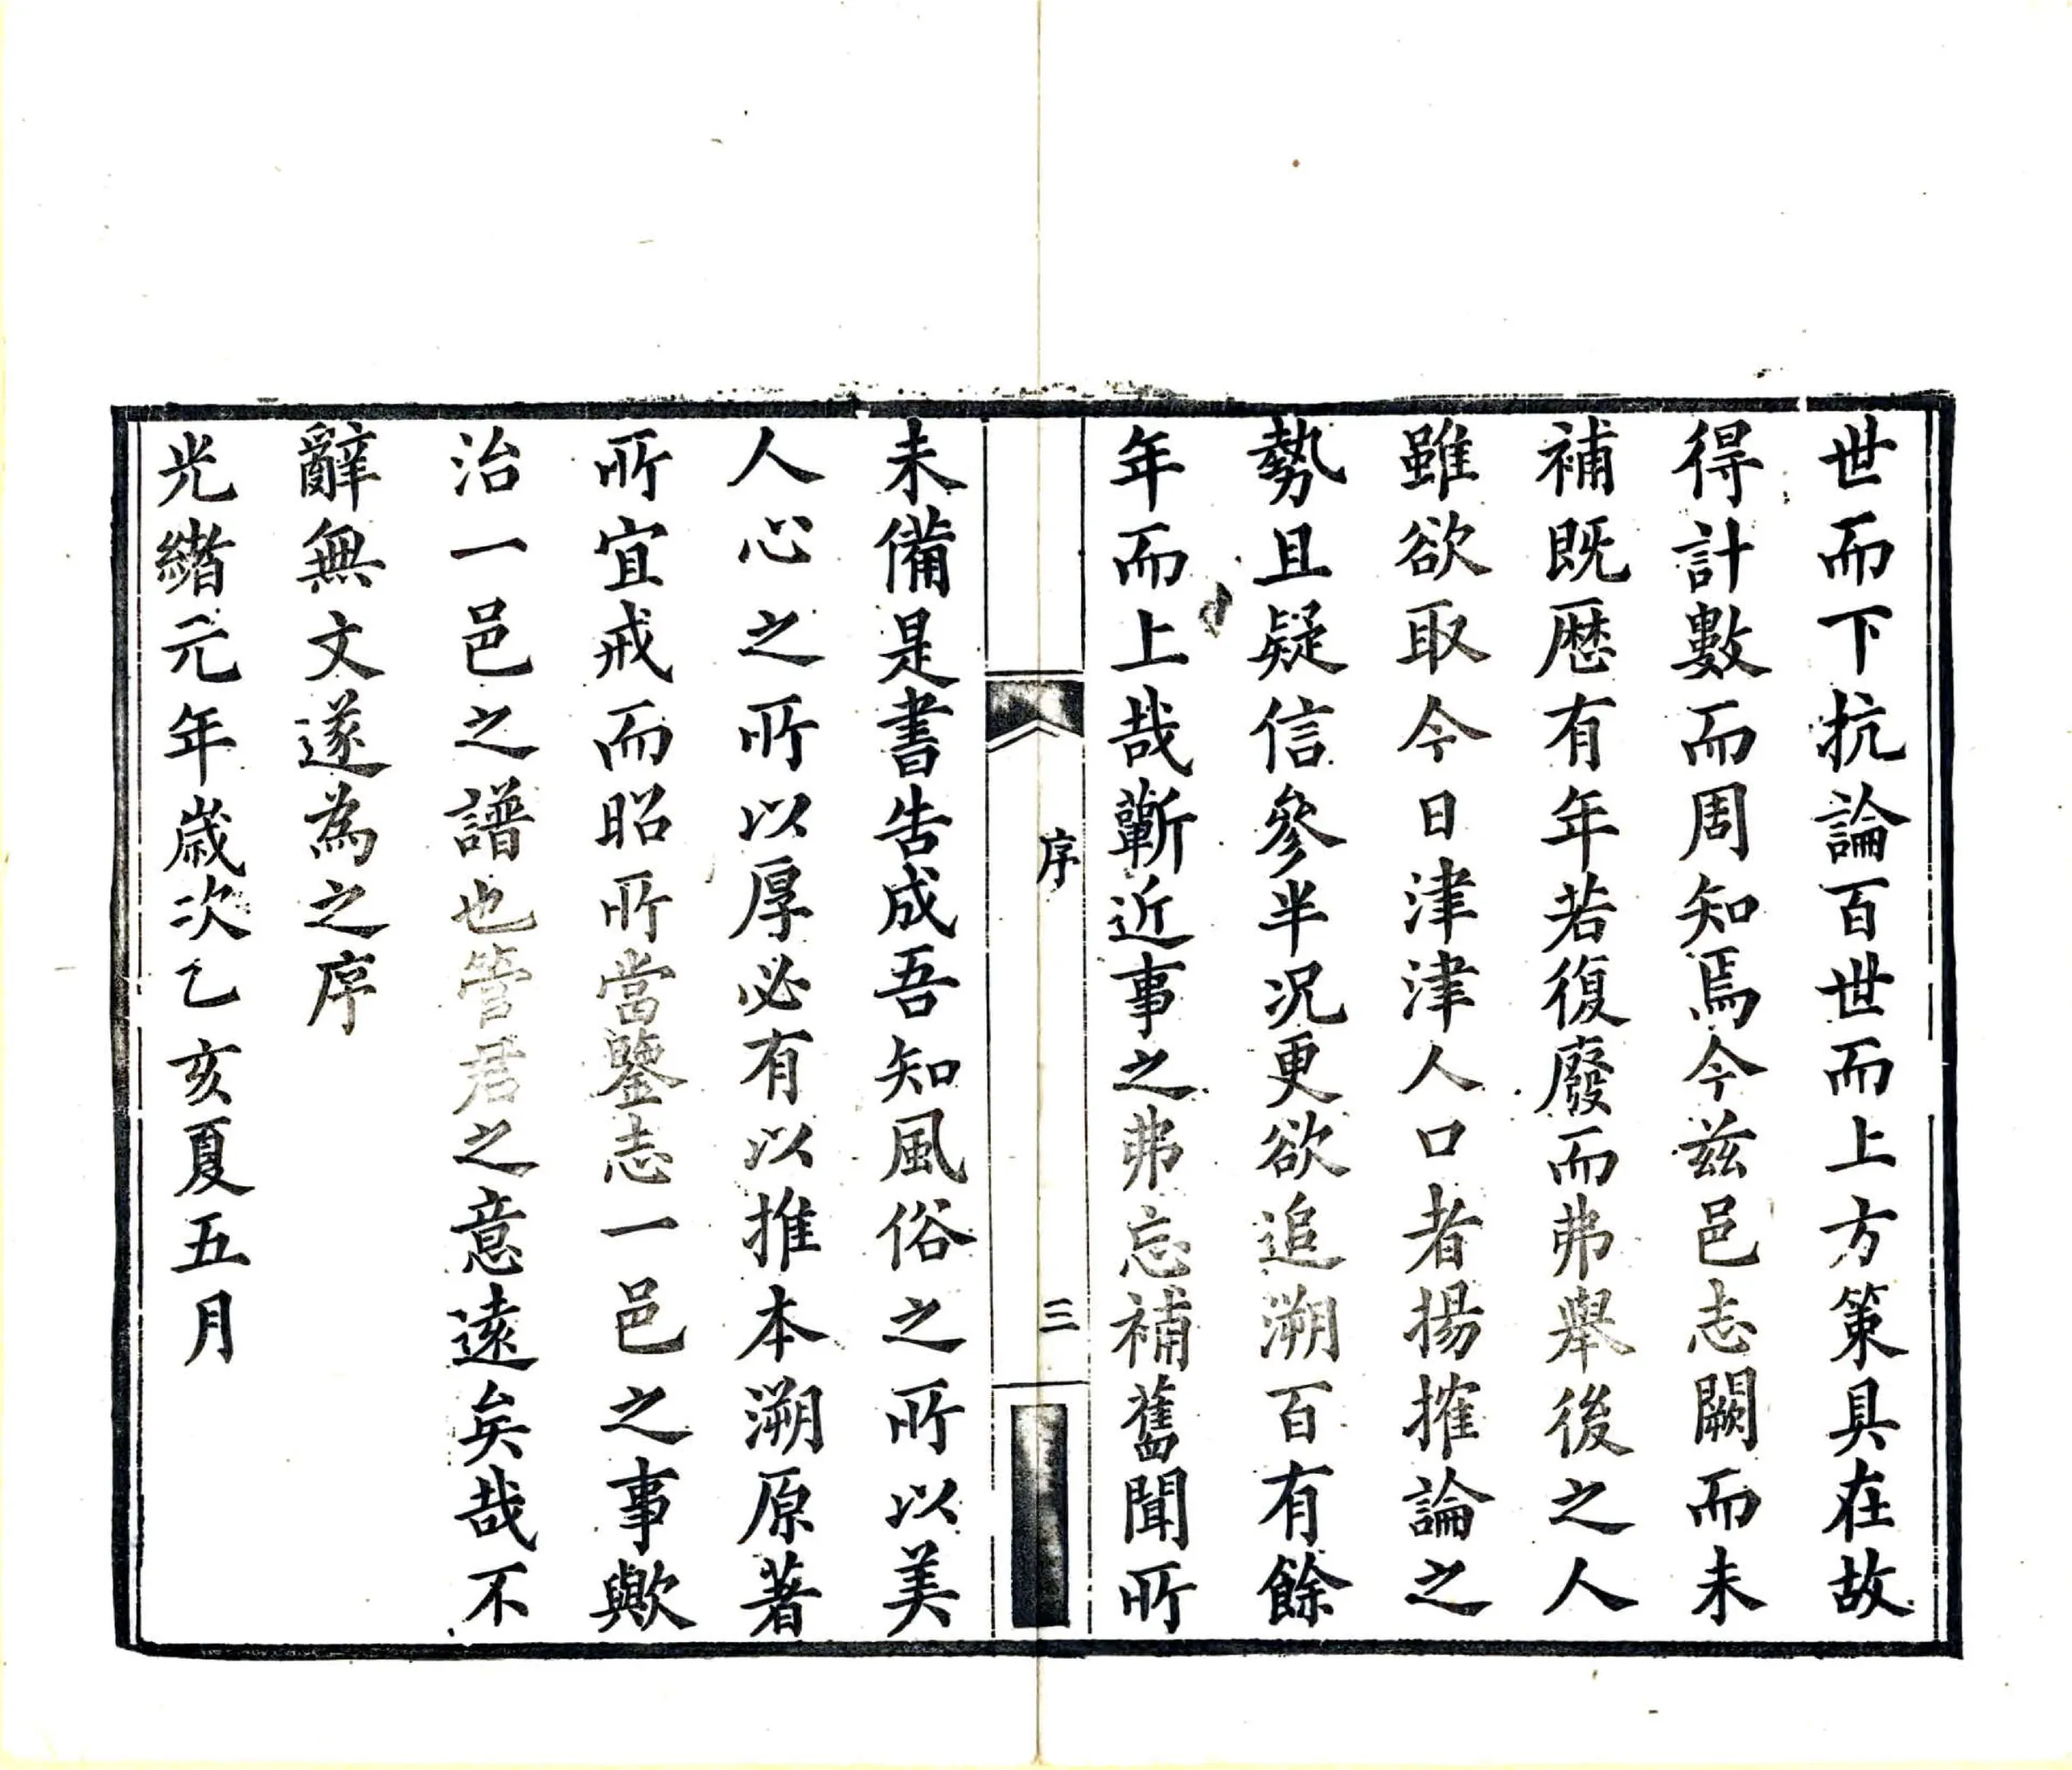 世而下抗論百世而上方策具在故
得計數而周知焉今兹邑志闕而未
補既歷有年若復廢而弗舉後之人
雖欲取今日津津人口者揚搉論之
勢且疑信參半况更欲追溯百有餘
年而上哉蘄近事之弗忘補舊聞所
序
三
未備是書告成吾知風俗之所以美
人心之所以厚必有以推本溯原著
所宜戒而昭所當鑒志一邑之事歟
治一邑之譜也管君之意遠矣哉不
辭無文遂為之序
光緒元年歲次乙亥夏五月